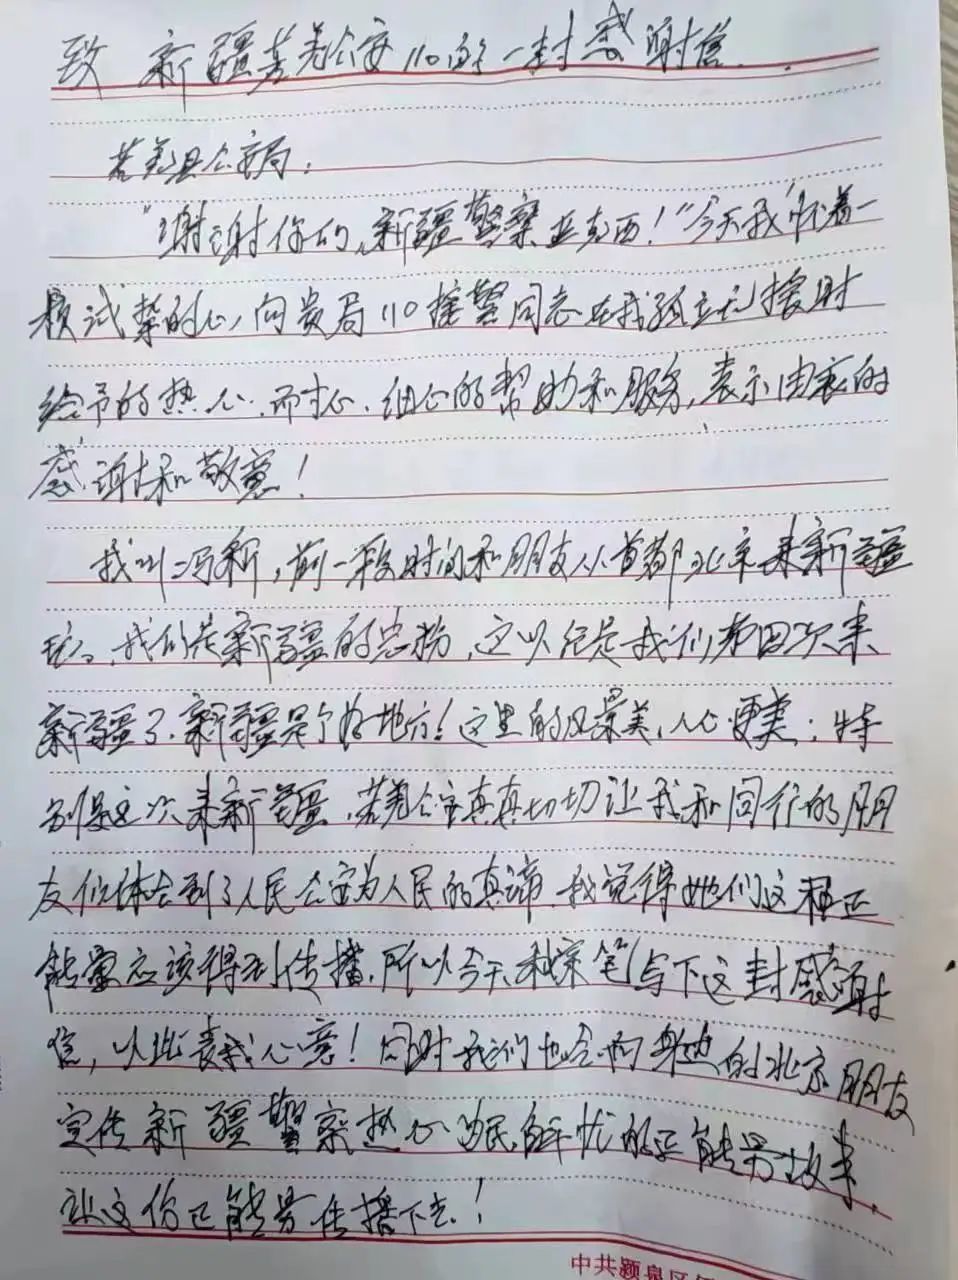 致新疆若羌公安110的一封感谢信
若羌县公安局:
"谢谢你们,新疆警察亚克西!"今天我怀着一
颗诚挚的心,向贵局110接警同志在我孤立无援时
给予的热心、耐心、细心的帮助和服务,表示由衷的
感谢和敬意!
我叫冯新,前一段时间和朋友从首都北京来新疆
玩。我们是新疆的忠粉,这以经是我们第四次来
新疆了,新疆是个好地方!这里的风景美,人心更美,特
别是这次来新疆,若羌公安真真切切让我和同行的朋
友们体会到了人民公安为人民的真谛,我觉得她们这种正
能量应该得到传播,所以今天我亲笔写下这封感谢
信,以此表我心意!同时我们也会向身边的北京朋友
宣传新疆警察热心为民解忧的正能量故事,
让这份正能量传播下去!
中共颍泉区